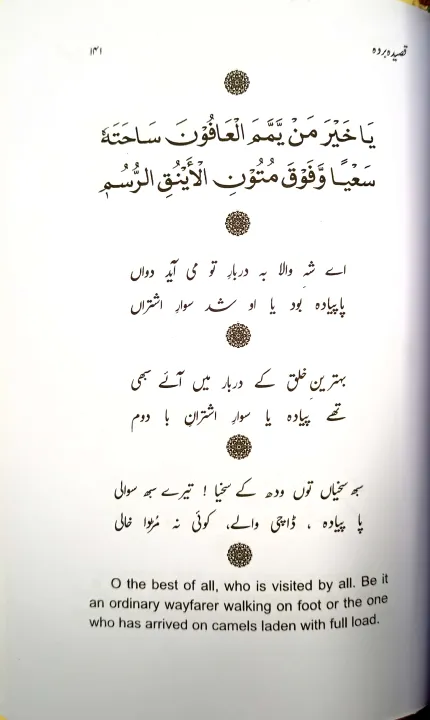 قصیدہ بردہ
۱۴۱
يَا خَيْرَ مَنْ يَّمَّمَ الْعَافُوْنَ سَاحَتَهٗ
سَعْيًا وَّفَوْقَ مُتُوْنِ الْأَيْنُقِ الرُّسُمِ
اے شہِ والا بہ دربارِ تو می آید دواں
پاپیادہ بود یا او شد سوارِ اشتراں
بہترینِ خلق کے دربار میں آئے سبھی
تھے پیادہ یا سوارِ اشترانِ با دوم
سبھ سخیاں توں ودھ کے سخیا ! تیرے سبھ سوالی
پا پیادہ ، ڈاچی والے، کوئی نہ مُڑدا خالی
O the best of all, who is visited by all. Be it
an ordinary wayfarer walking on foot or the one
who has arrived on camels laden with full load.